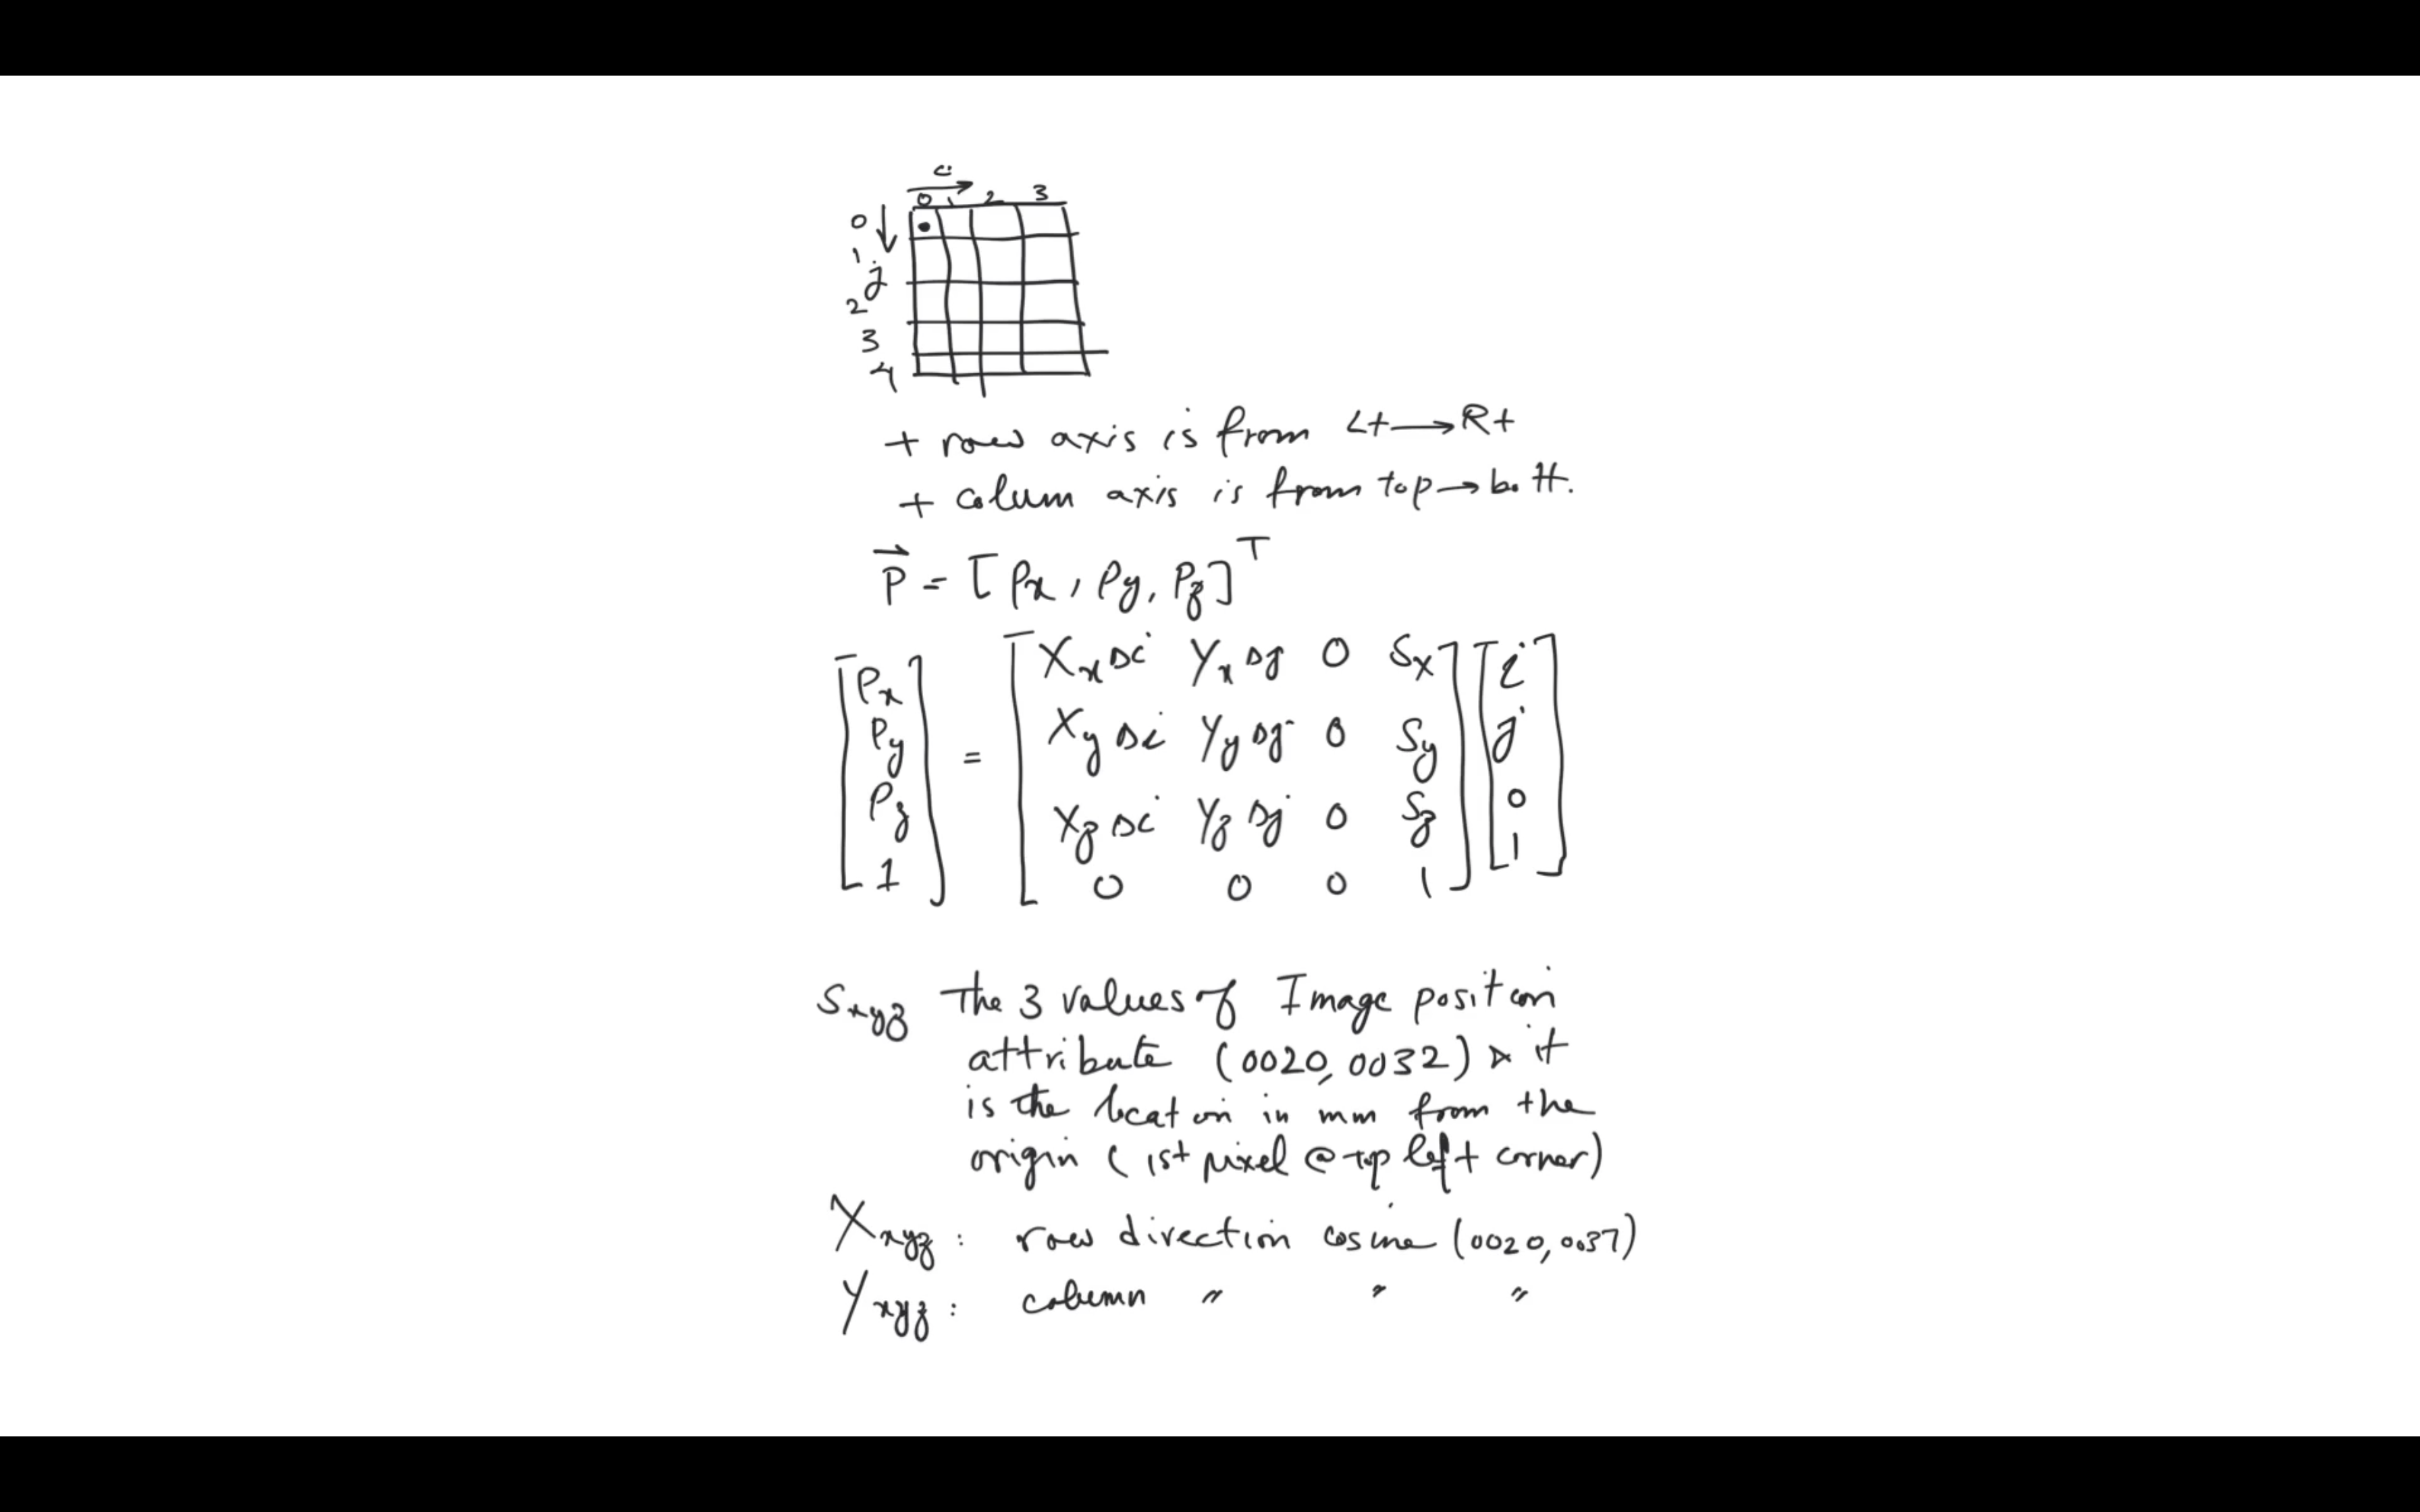 i
0 1 2 3
0
1
j
2
3
4
+ row axis is from Lt → Rt
+ colum axis is from top → bott.
P = [Px, Py, Pz]ᵀ
[Px] = [Xx Δi Yx Δj 0 Sx] [i]
[Py] [Xy Δi Yy Δj 0 Sy] [j]
[Pz] [Xz Δi Yz Δj 0 Sz] [0]
[1] [0 0 0 1] [1]
Sxyz The 3 values of Image position
attribute (0020,0032) it
is the location in mm from the
origin (1st pixel @ top left corner)
Xxyz : row direction cosine (0020,0037)
Yxyz : column " " "